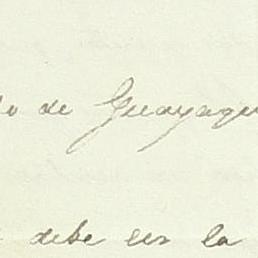 de Guayaqu
debe ser la